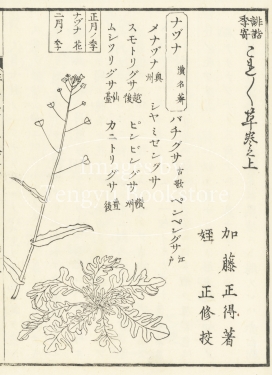 俳諧
季寄
これ〳〵草巻之上
加藤正得著
姪 正修挍
ナヅナ 漢名薺
バチグサ 古歌 ペンペングサ 江戸
メナヅナ 奥州 シヤミセングサ
スモトリグサ 越後 ピンピングサ
ムシツリグサ 仙臺 カニトリグサ
正月ノ季
ナヅナ花
二月ノ季